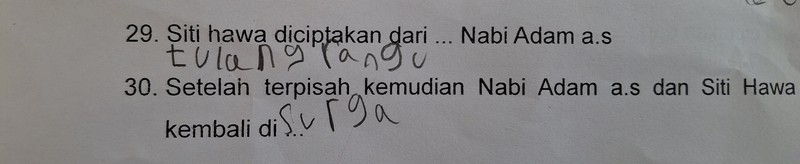 29. Siti hawa diciptakan dari ... Nabi Adam a.s
tulang rangu
30. Setelah terpisah kemudian Nabi Adam a.s dan Siti Hawa
kembali di ... Surga